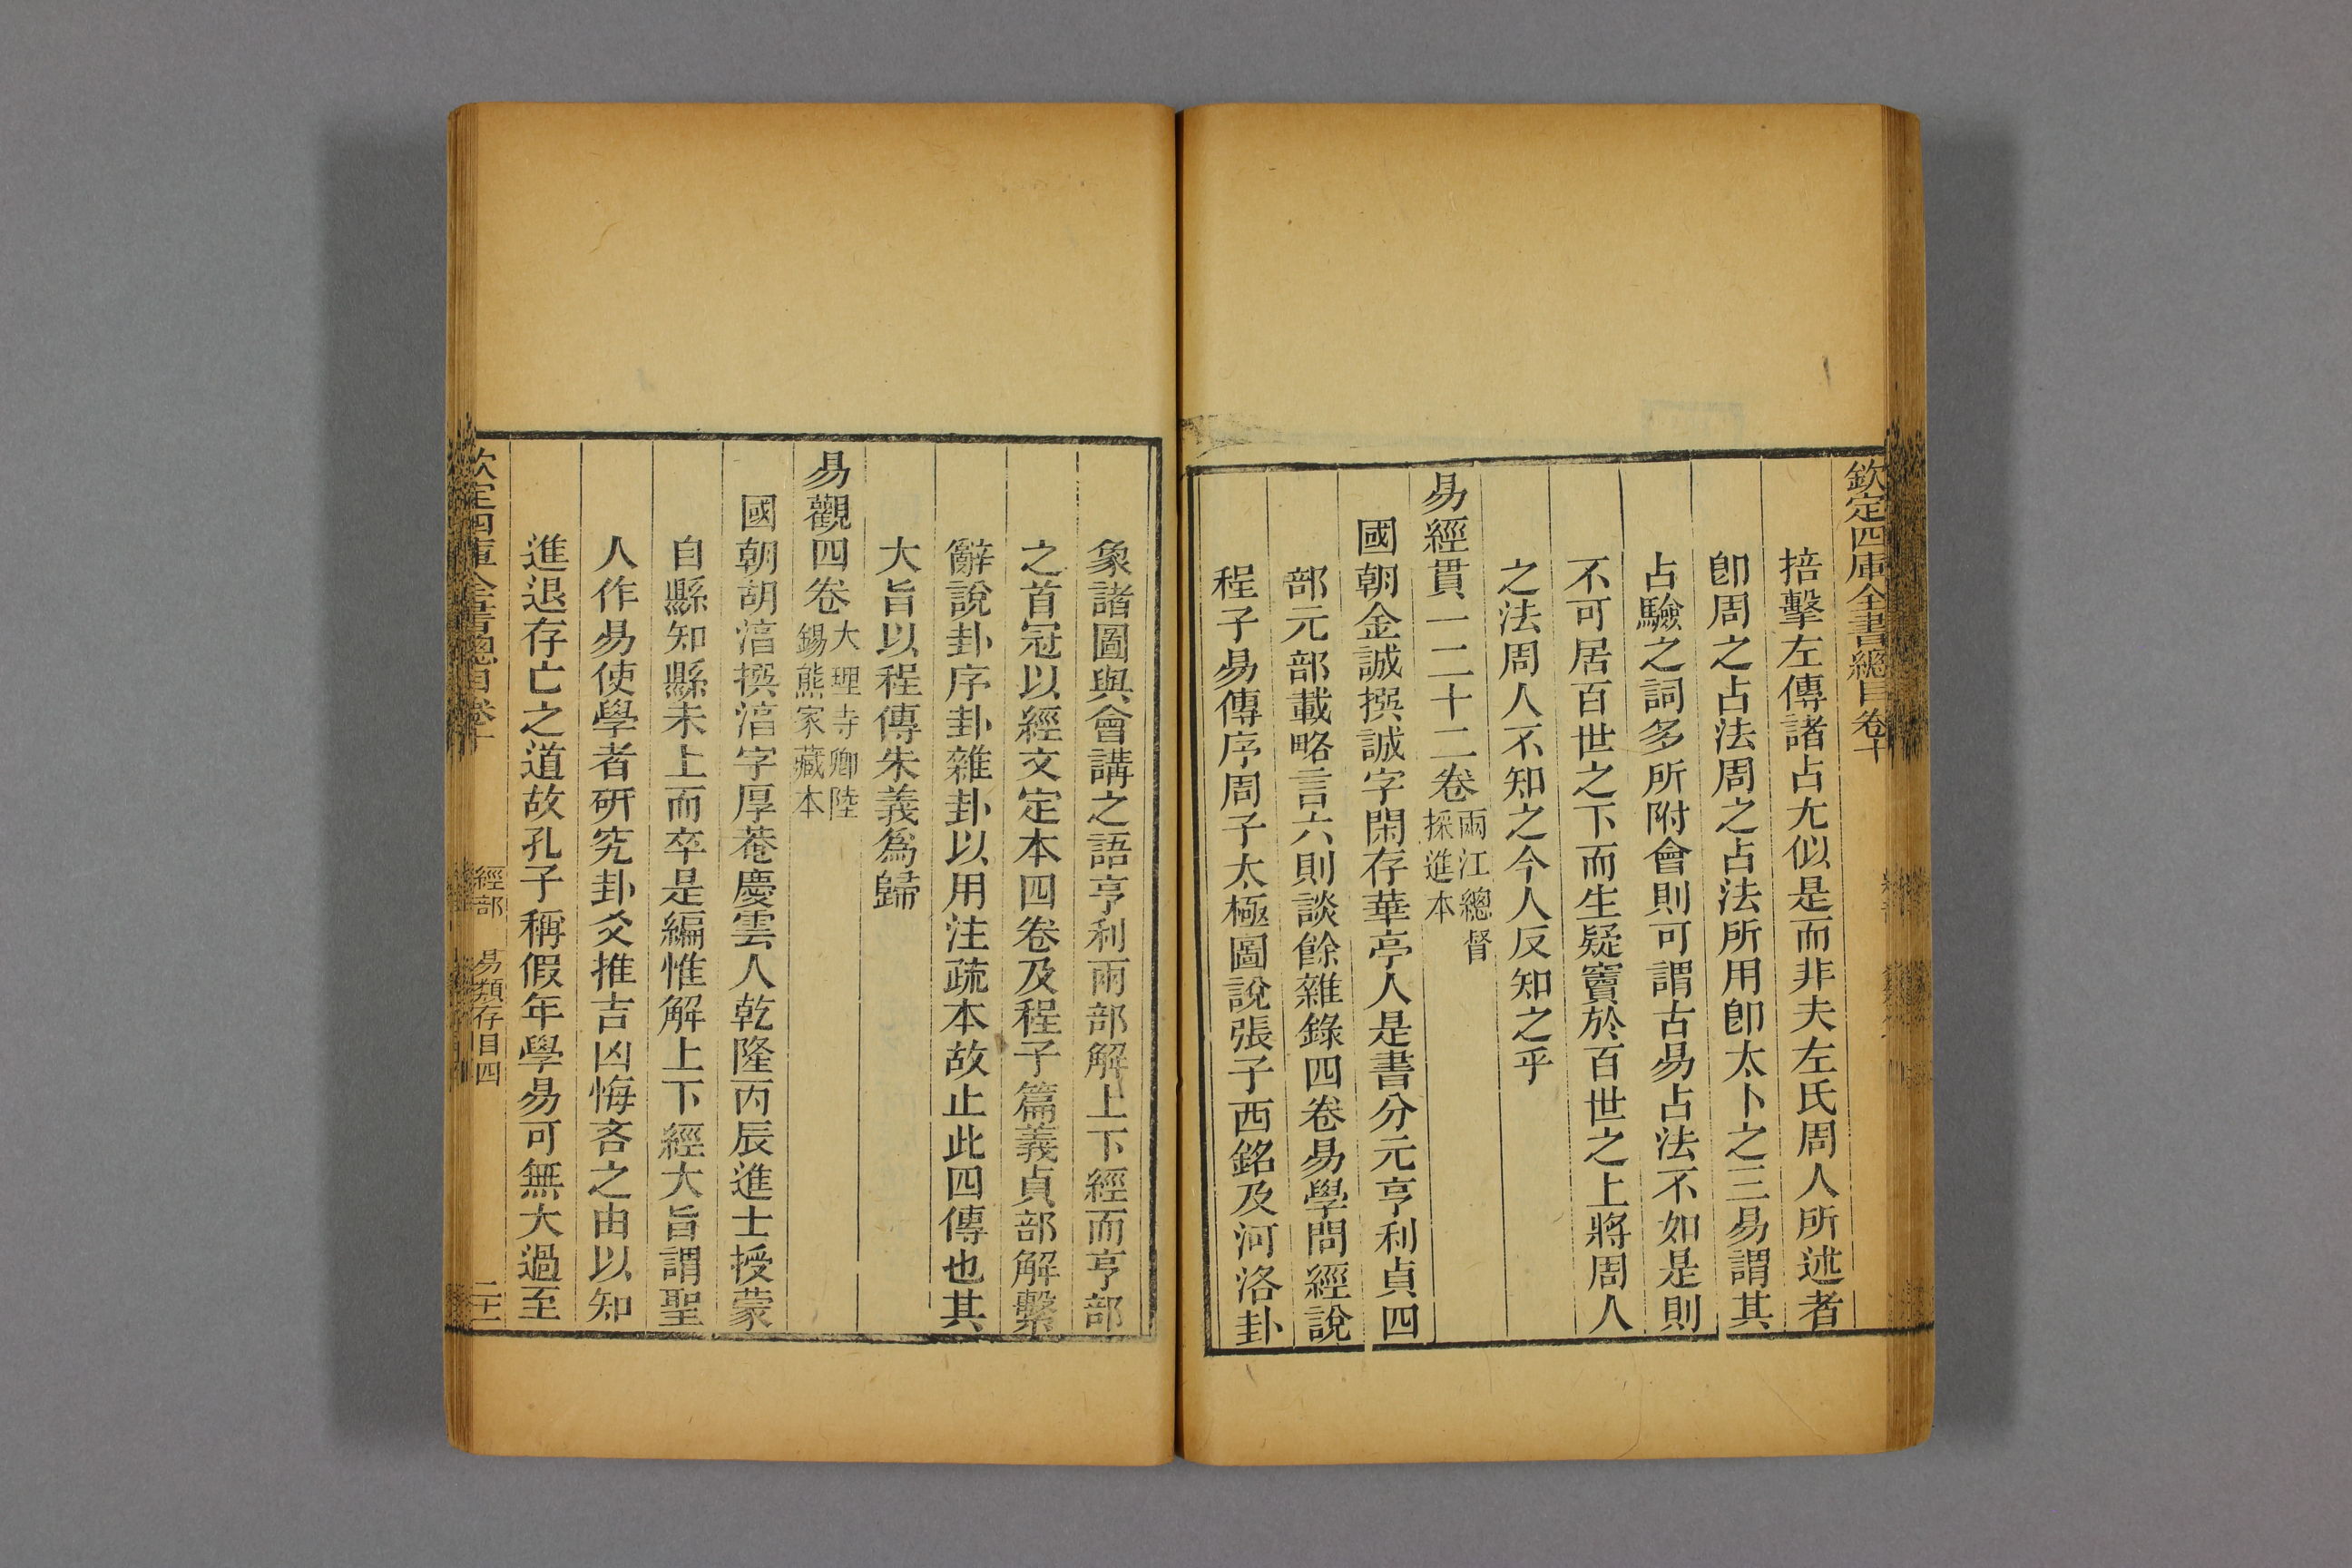 欽定四庫全書總目卷十
掊擊左傳諸占尤似是而非夫左氏周人所述者
卽周之占法周之占法所用卽太卜之三易謂其
占驗之詞多所附會則可謂古易占法不如是則
不可居百世之下而生疑竇於百世之上將周人
之法周人不知之今人反知之乎
易經貫一二十二卷兩江總督
採進本
國朝金誠撰誠字閑存華亭人是書分元亨利貞四
部元部載略言六則談餘雜錄四卷易學問經說
程子易傳序周子太極圖說張子西銘及河洛卦
象諸圖與會講之語亨利兩部解上下經而亨部
之首冠以經文定本四卷及程子篇義貞部解繫
辭說卦序卦雜卦以用注疏本故止此四傳也其
大旨以程傳朱義爲歸
易觀四卷大理寺卿陸
錫熊家藏本
國朝胡淓撰淓字厚菴慶雲人乾隆丙辰進士授蒙
自縣知縣未上而卒是編惟解上下經大旨謂聖
人作易使學者研究卦爻推吉凶悔吝之由以知
進退存亡之道故孔子稱假年學易可無大過至
欽定四庫全書總目卷十
經部 易類存目四